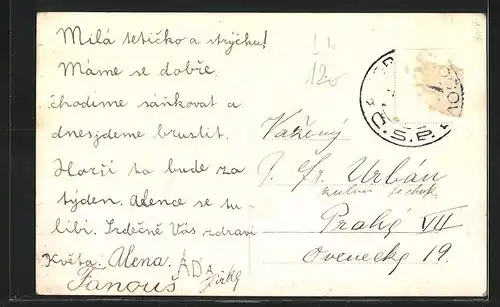 Milá tetičko a strýčku!
Máme se dobře,
chodíme sáňkovat a
dnes jdeme bruslit.
Horší to bude za
týden. Alence se tu
líbí. Srdečně Vás zdraví
Květa. Alena. ÁĎA
Fanouš Jirka
120
Č.S.P.
Vážený
P. Fr. Urbán
Prahy VII
Ovenecká 19.